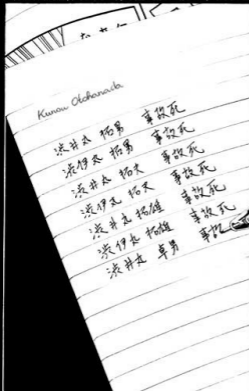 Kunou Otoharada
渋井丸 拓男 事故死
渋伊丸 拓男 事故死
渋井丸 拓夫 事故死
渋伊丸 拓夫 事故死
渋井丸 拓雄 事故死
渋伊丸 拓雄 事故死
渋井丸 卓男 事故